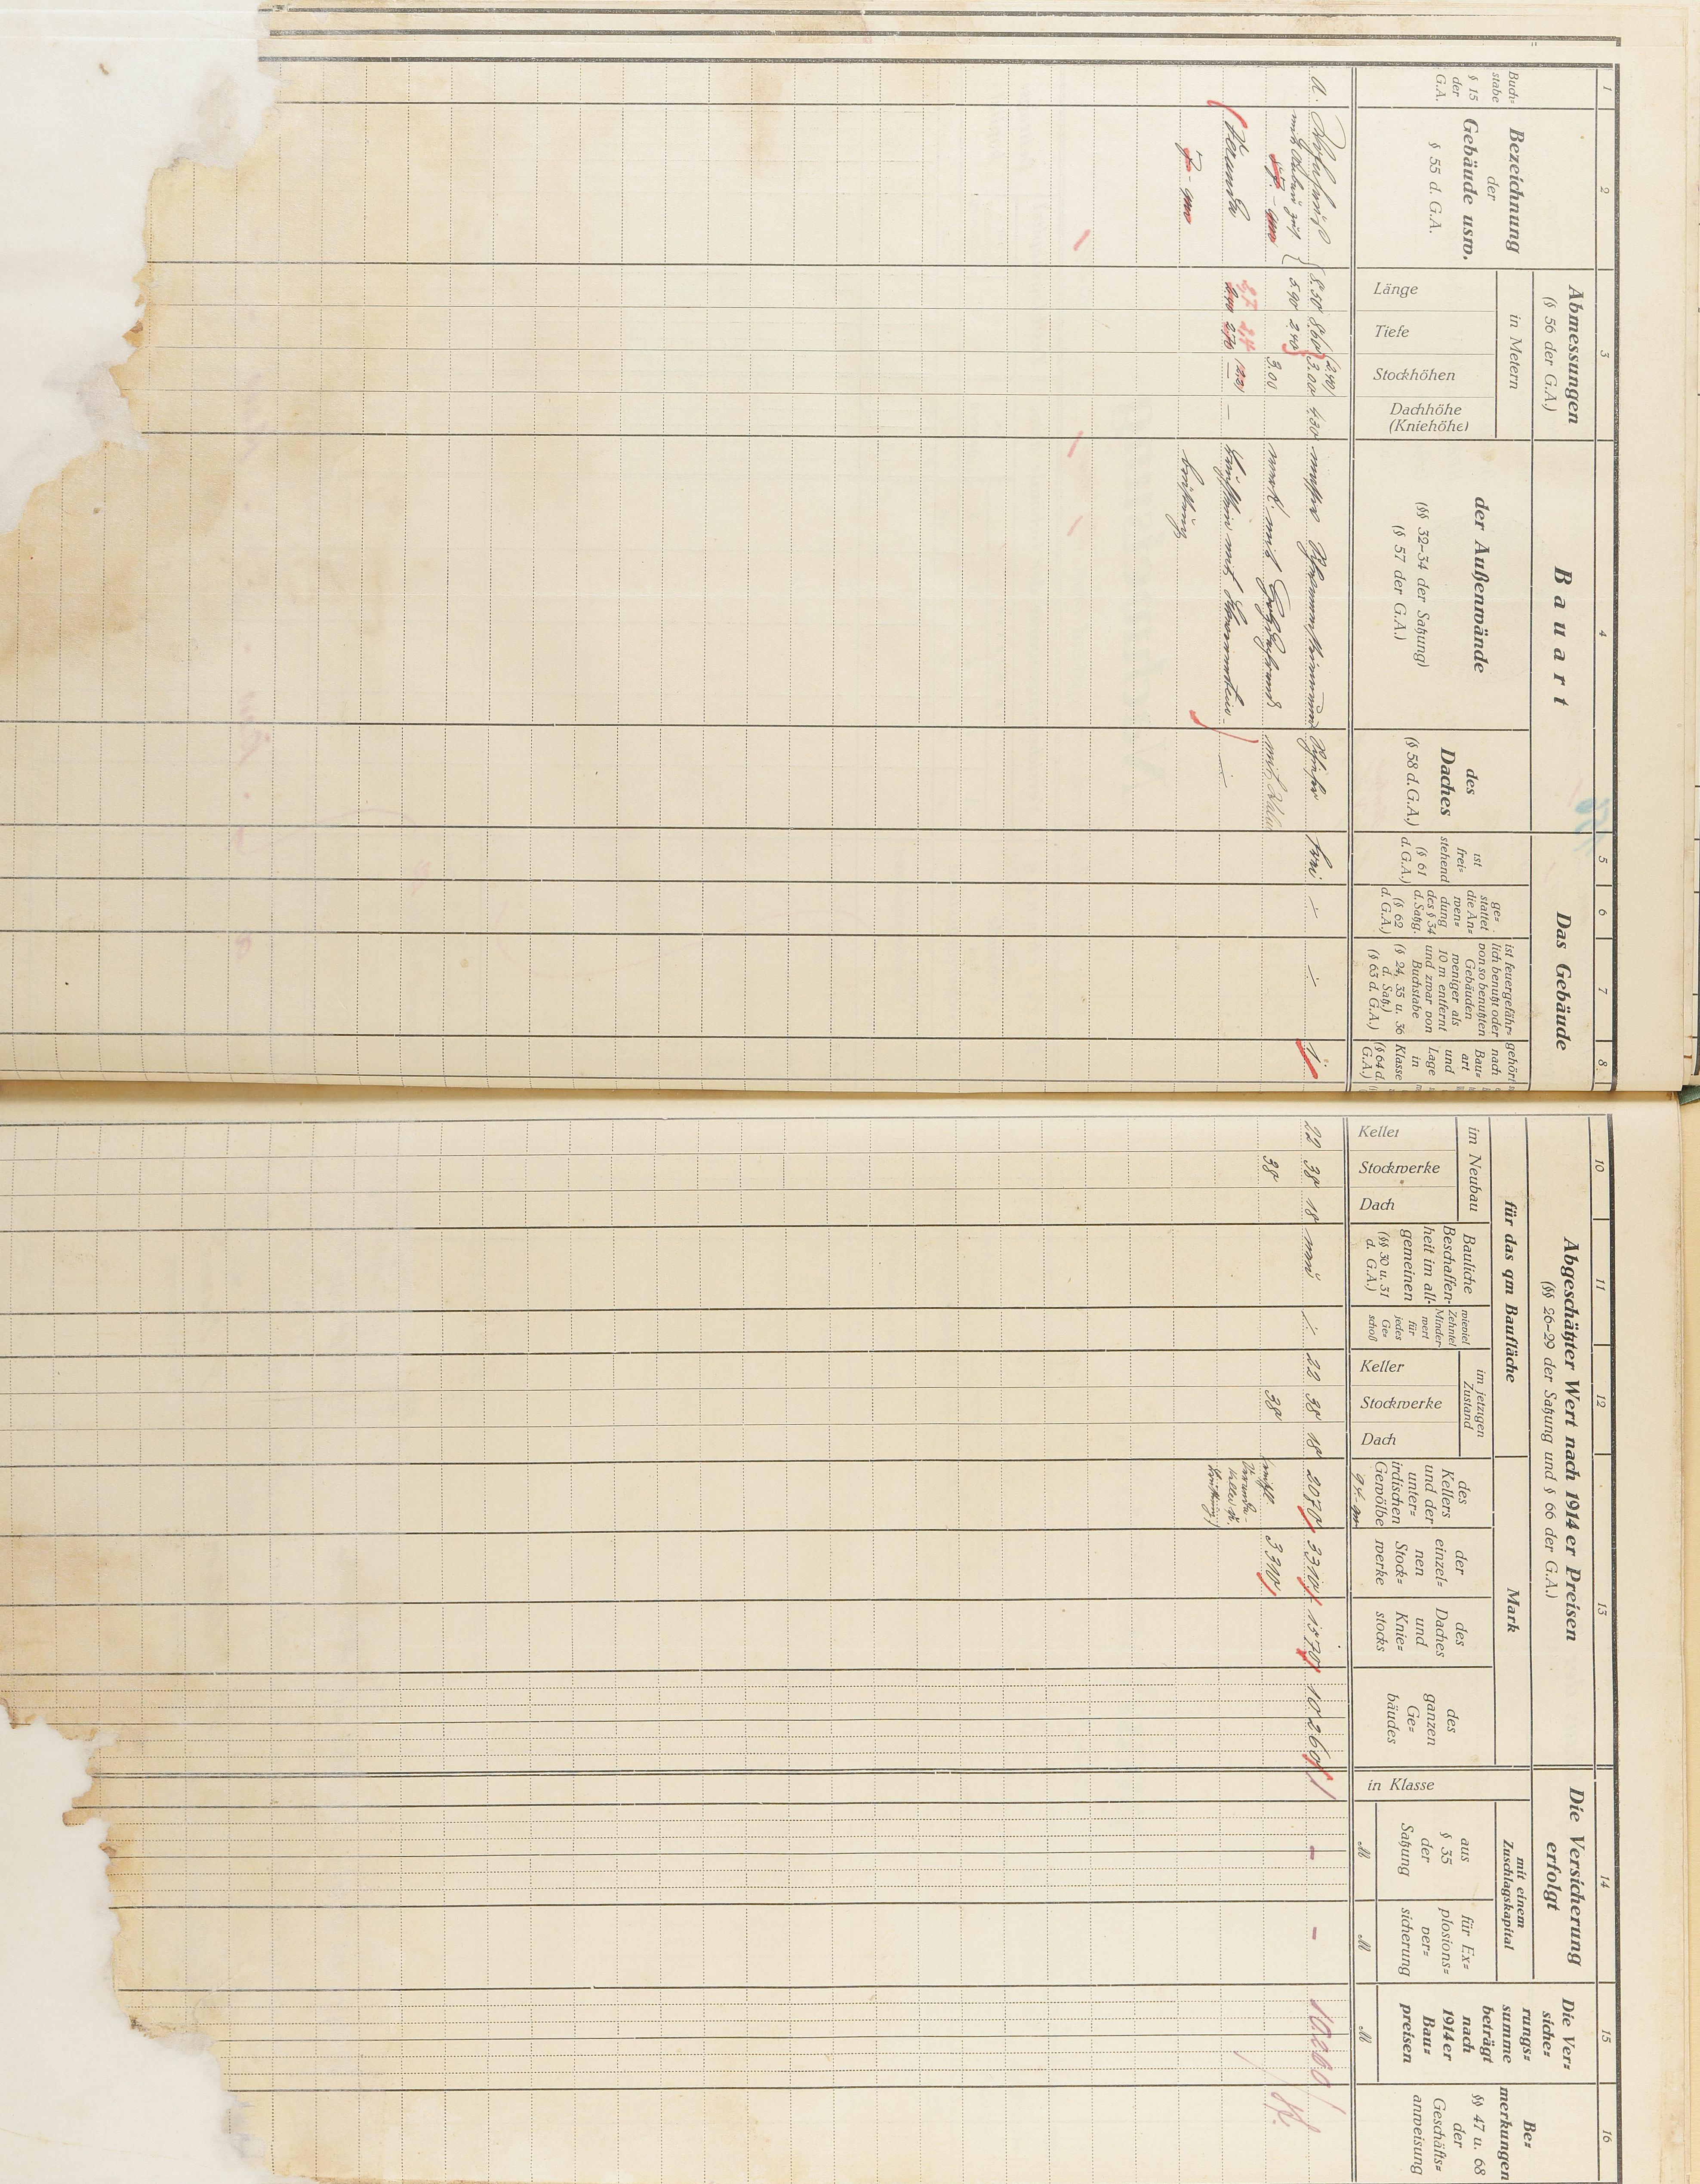 1
2
3
4
5
6
7
8
Buch=
stabe
§ 15
der
G.A.
Bezeichnung
der
Gebäude usw.
§ 55 d. G.A.
Abmessungen
(§ 56 der G.A.)
in Metern
Länge
Tiefe
Stockhöhen
Dachhöhe
(Kniehöhe)
Bauart
der Außenwände
(§§ 32–34 der Satzung)
(§ 57 der G.A.)
des
Daches
(§ 58 d. G.A.)
Das Gebäude
ist
frei=
stehend
(§ 61
d. G.A.)
ge=
stattet
die An=
wen=
dung
des § 34
d. Satzg.
(§ 62
d. G.A.)
ist feuergefähr=
lich benutzt oder
von so benutzten
Gebäuden
weniger als
10 m entfernt
und zwar von
Buchstabe
(§ 24, 35 u. 36
d. Satz.)
(§ 63 d. G.A.)
gehört
nach
Bau=
art
und
Lage
in
Klasse
(§ 64 d.
G.A.)
a. Wohnhaus 8.50 8.60 3.00 4.30 massiv frei
mit Anbau 5.90 2.40
3.00 mit
Veranda
10
11
12
13
14
15
16
Abgeschätzter Wert nach 1914 er Preisen
(§§ 26–29 der Satzung und § 66 der G.A.)
für das qm Baufläche
im Neubau
Keller
Stockwerke
Dach
Bauliche
Beschaffen=
heit im all=
gemeinen
(§§ 30 u. 31
d. G.A.)
wieviel
Zehntel
Minder
wert
für
jedes
Ge=
schoß
im jetzigen
Zustand
Keller
Stockwerke
Dach
Mark
des
Kellers
und der
unter=
irdischen
Gewölbe
der
einzel=
nen
Stock=
werke
des
Daches
und
Knie=
stocks
des
ganzen
Ge=
bäudes
Die Versicherung
erfolgt
in Klasse
mit einem
Zuschlagskapital
aus
§ 35
der
Satzung
M
für Ex=
plosions=
ver=
sicherung
M
Die Ver=
siche=
rungs=
summe
beträgt
nach
1914 er
Bau=
preisen
M
Be=
merkungen
§§ 47 u. 68
der
Geschäfts=
anweisung
22 38 18 neu 22 38 18 2070 3310 1570 10260 – – 10260
38 38 3310